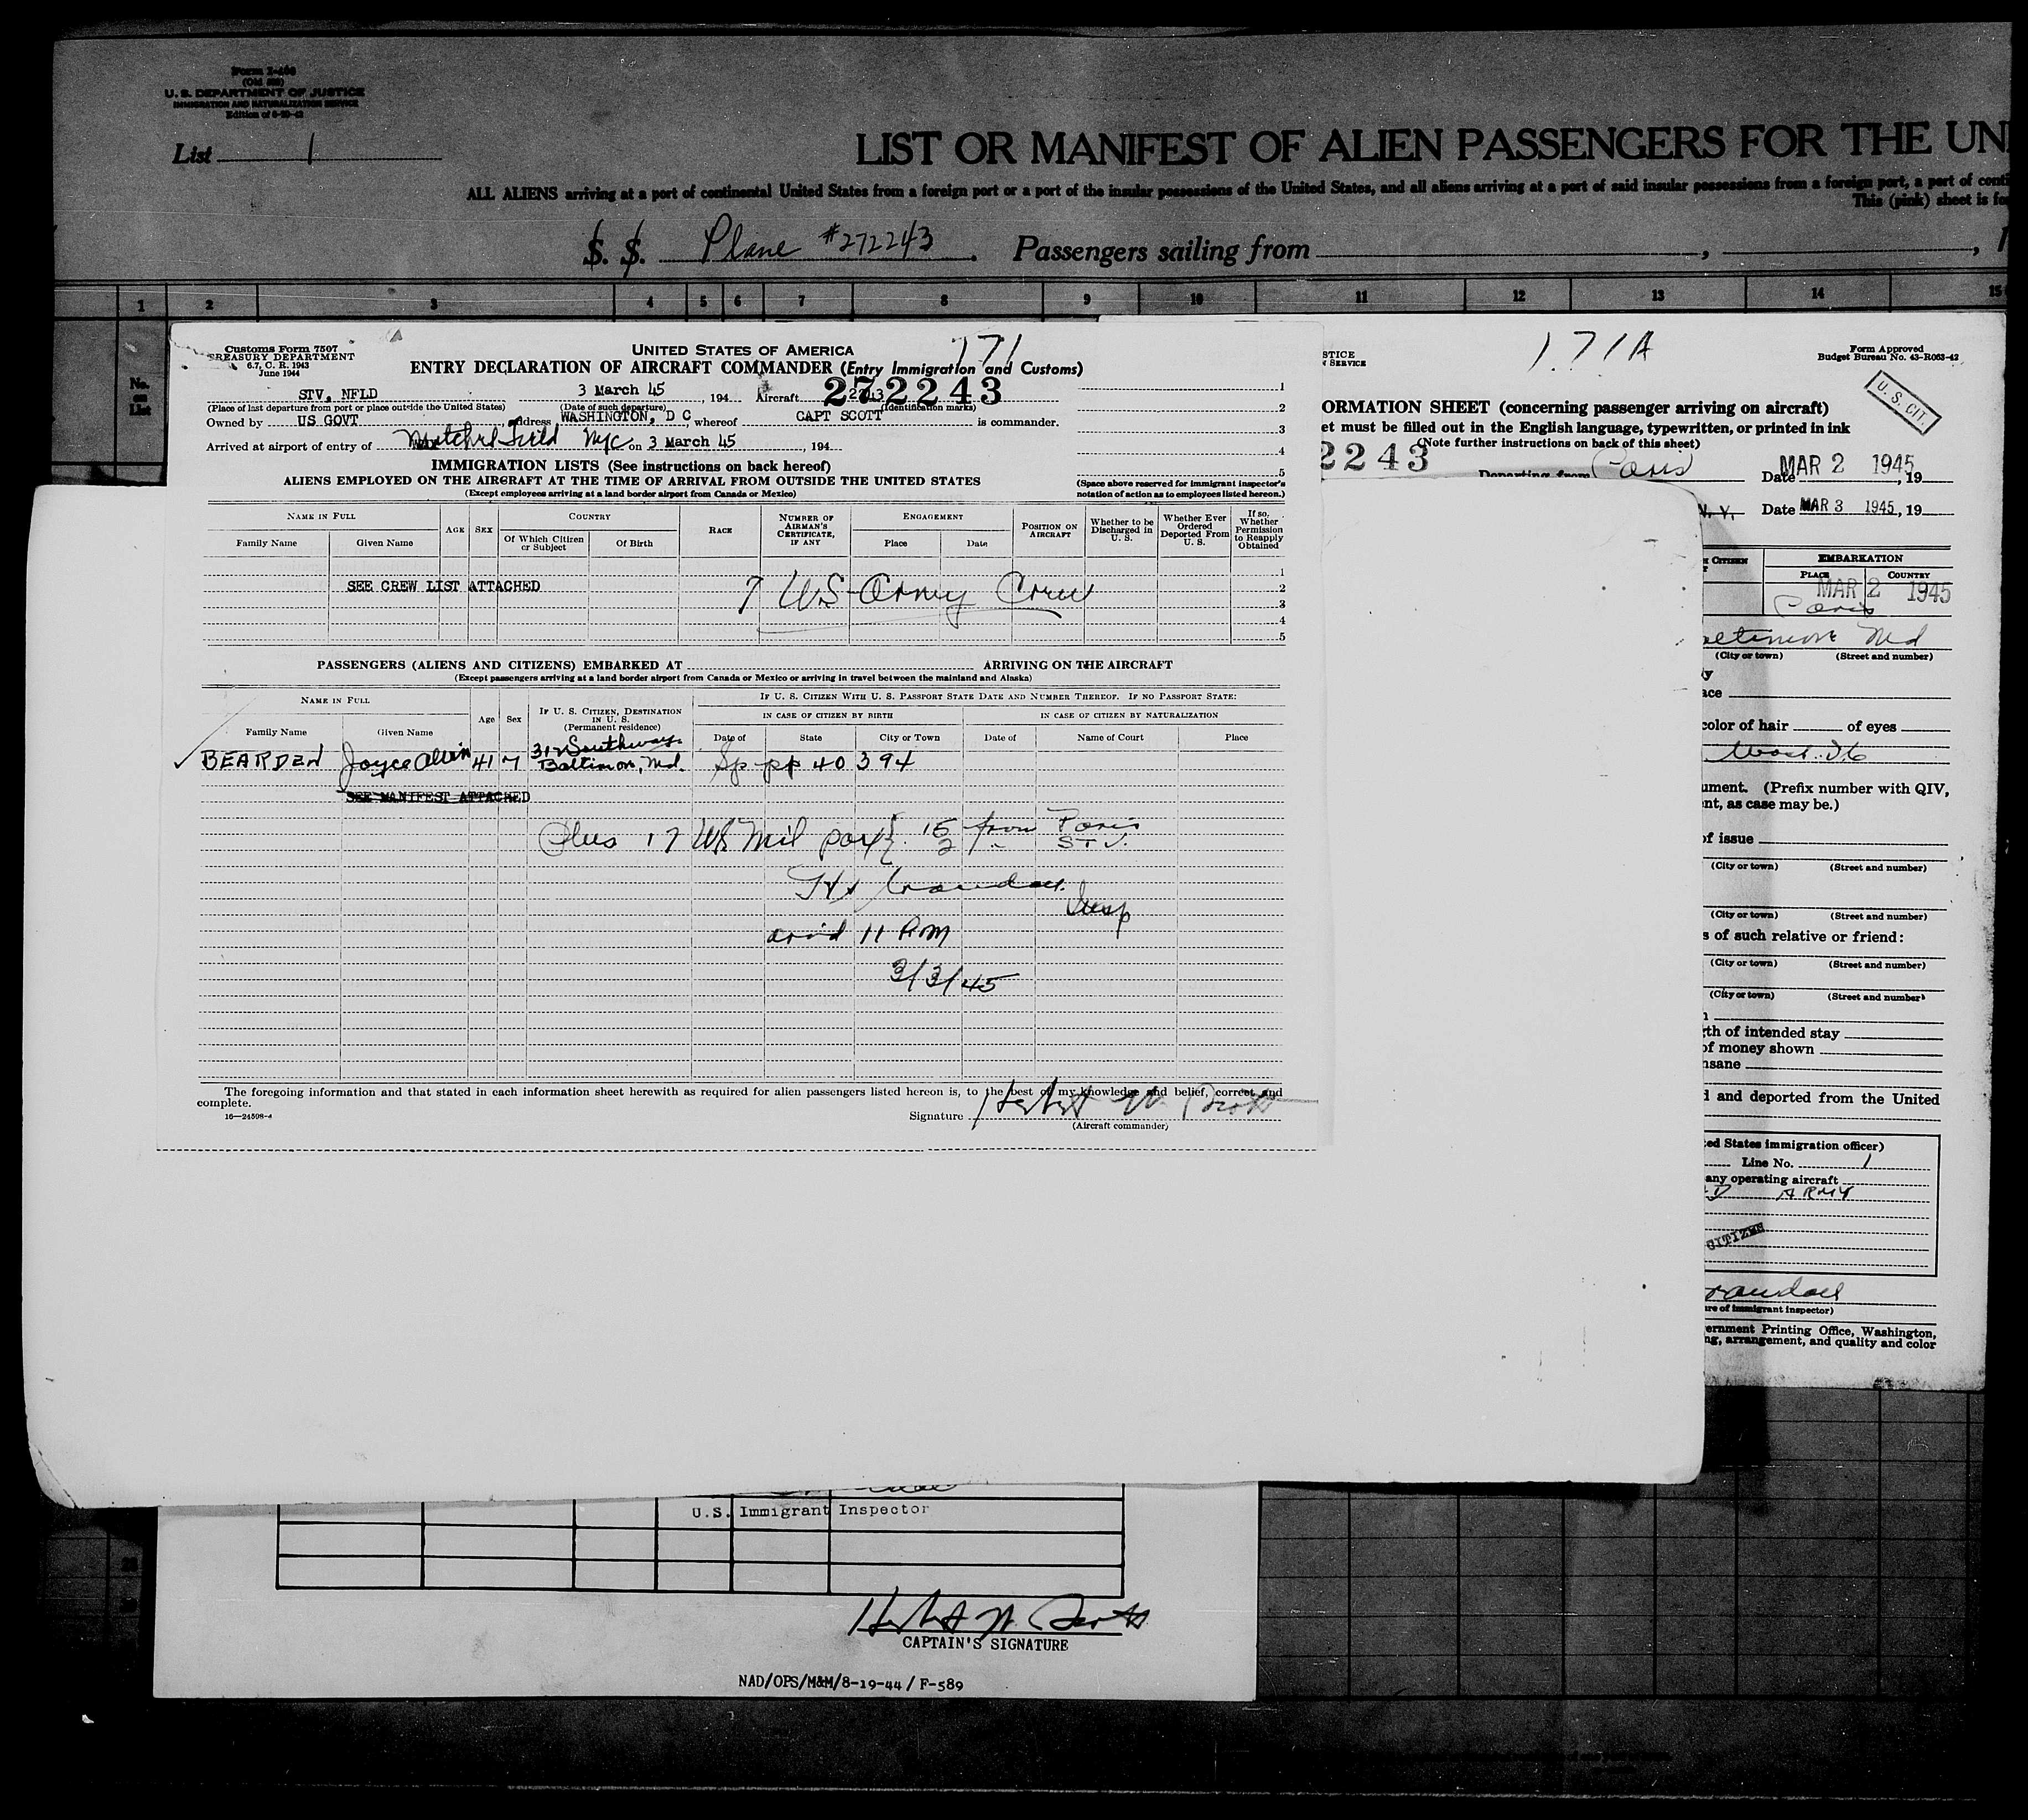 Form I-466
(Old 500)
U. S. DEPARTMENT OF JUSTICE
IMMIGRATION AND NATURALIZATION SERVICE
Edition of 6-20-42
List 1
LIST OR MANIFEST OF ALIEN PASSENGERS FOR THE UN
ALL ALIENS arriving at a port of continental United States from a foreign port or a port of the insular possessions of the United States, and all aliens arriving at a port of said insular possessions from a foreign port, a port of conti
This (pink) sheet is fo
S. S. Plane #272243. Passengers sailing from , , 1
1 2 3 4 5 6 7 8 9 10 11 12 13 14 15
No. on List
Customs Form 7507
TREASURY DEPARTMENT
6.7, C. R. 1943
June 1944
UNITED STATES OF AMERICA
171
ENTRY DECLARATION OF AIRCRAFT COMMANDER (Entry Immigration and Customs)
STV, NFLD 3 March 45, 194 Aircraft 272243
(Place of last departure from port or place outside the United States) (Date of such departure) (Identification marks)
Owned by US GOVT, address WASHINGTON, D C, whereof CAPT SCOTT is commander.
Arrived at airport of entry of Mitchel Field NYC on 3 March 45, 194
1
2
3
4
5
IMMIGRATION LISTS (See instructions on back hereof)
ALIENS EMPLOYED ON THE AIRCRAFT AT THE TIME OF ARRIVAL FROM OUTSIDE THE UNITED STATES
(Except employees arriving at a land border airport from Canada or Mexico)
(Space above reserved for immigrant inspector's
notation of action as to employees listed hereon.)
NAME IN FULL AGE SEX COUNTRY RACE NUMBER OF AIRMAN'S CERTIFICATE, IF ANY ENGAGEMENT POSITION ON AIRCRAFT Whether to be Discharged in U. S. Whether Ever Ordered Deported From U. S. If so, Whether Permission to Reapply Obtained
Family Name Given Name Of Which Citizen or Subject Of Birth Place Date
1
SEE CREW LIST ATTACHED 7 US Army Crew 2
3
4
5
PASSENGERS (ALIENS AND CITIZENS) EMBARKED AT ARRIVING ON THE AIRCRAFT
(Except passengers arriving at a land border airport from Canada or Mexico or arriving in travel between the mainland and Alaska)
NAME IN FULL Age Sex IF U. S. CITIZEN, DESTINATION IN U. S. (Permanent residence) IF U. S. CITIZEN WITH U. S. PASSPORT STATE DATE AND NUMBER THEREOF. IF NO PASSPORT STATE:
IN CASE OF CITIZEN BY BIRTH IN CASE OF CITIZEN BY NATURALIZATION
Family Name Given Name Date of State City or Town Date of Name of Court Place
312 Southway
BEARDEN Joyce Alvin 41 M Baltimore, Md. Sp pp 40 394
SEE MANIFEST ATTACHED
Plus 17 US Mil pax { 15 from Paris
2 " STV.
Crandall
Insp
arr'd 11 PM
3/3/45
The foregoing information and that stated in each information sheet herewith as required for alien passengers listed hereon is, to the best of my knowledge and belief, correct and
complete.
16—24598-4
Signature Herbert W. Scott
(Aircraft commander)
STICE
N SERVICE
171A
Form Approved
Budget Bureau No. 43-R063-42
U. S. CIT.
ORMATION SHEET (concerning passenger arriving on aircraft)
et must be filled out in the English language, typewritten, or printed in ink
(Note further instructions on back of this sheet)
2243 Departing from Paris Date MAR 2 1945, 19
N. Y. Date MAR 3 1945, 19
CITIZEN EMBARKATION
PLACE COUNTRY
MAR 2 1945
Paris
altimore Md
(City or town) (Street and number)
y
ace
color of hair of eyes
ument. (Prefix number with QIV,
nt, as case may be.)
of issue
(City or town) (Street and number)
(City or town) (Street and number)
s of such relative or friend:
(City or town) (Street and number)
(City or town) (Street and number)
n
gth of intended stay
of money shown
nsane
d and deported from the United
ted States immigration officer)
Line No. 1
any operating aircraft
ARMY
CITIZEN
randall
ure of immigrant inspector)
ernment Printing Office, Washington,
ng, arrangement, and quality and color
U.S. Immigrant Inspector
Herbert W. Scott
CAPTAIN'S SIGNATURE
NAD/OPS/M&M/8-19-44/ F-589